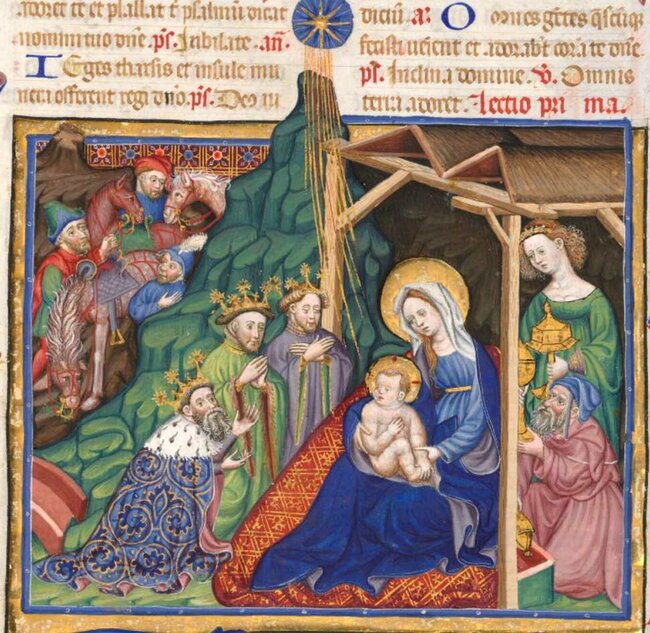 adoret te et psallat t̄ psalmū dicat
nomini tuo dñe. p̄s. Iubilate. añ.
I Eges tharsis et insule mu
nera offerent regi dño. p̄s. Deo iu
diciū a: O omēs gētes q̄scūq
fecisti ueient et adorabt corā te dñe
p̄s. Inclina domine. v̄. Omnis
terra adoret. Lectio pri ma.